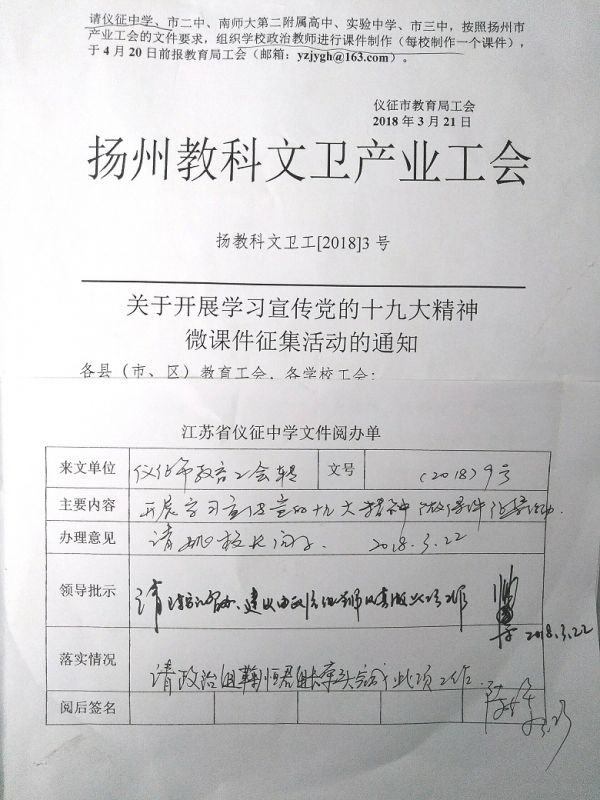 请仪征中学、市二中、南师大第二附属高中、实验中学、市三中，按照扬州市
产业工会的文件要求，组织学校政治教师进行课件制作（每校制作一个课件），
于4月20日前报教育局工会（邮箱：yzjygh@163.com）。
仪征市教育局工会
2018年3月21日
扬州教科文卫产业工会
扬教科文卫工[2018]3号
关于开展学习宣传党的十九大精神
微课件征集活动的通知
各县（市、区）教育工会，各学校工会：
江苏省仪征中学文件阅办单
来文单位 仪征市教育工会转 文号 （2018）9号
主要内容 开展学习宣传党的十九大精神微课件征集活动
办理意见 请姚校长阅示 2018.3.22
领导批示 请 建议由政治组 负责做此项工作
2018.3.22
落实情况 请政治组鞠恒君组长牵头完成此项工作
阅后签名